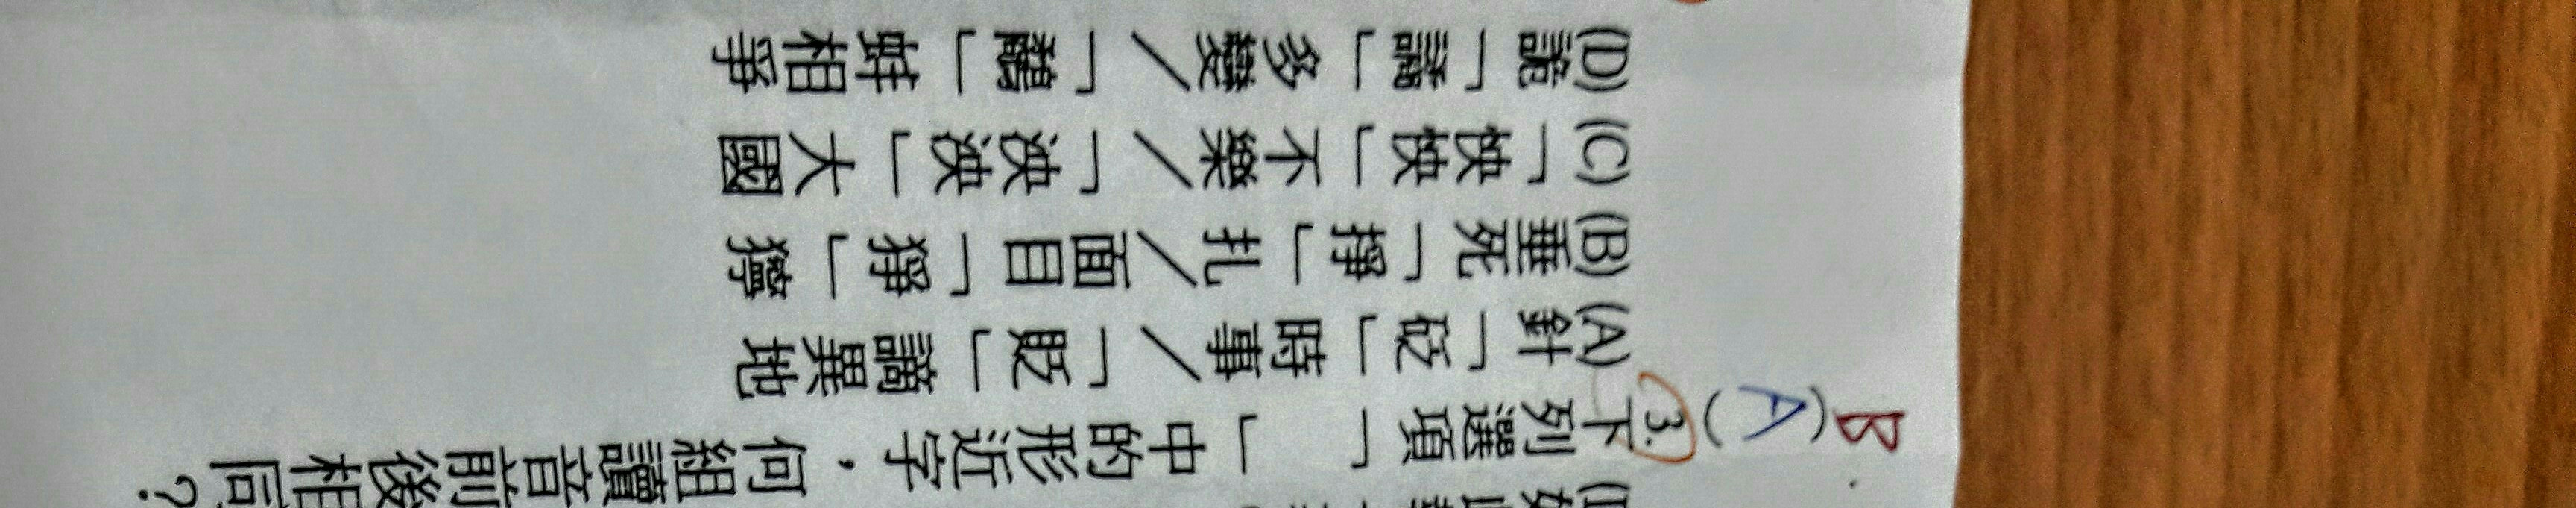 B (A) 3.下列選項「　」中的形近字，何組讀音前後相同？
(A)針「砭」時事／「貶」謫異地
(B)垂死「掙」扎／面目「猙」獰
(C)「怏怏」不樂／「泱泱」大國
(D)詭「譎」多變／「鷸」蚌相爭